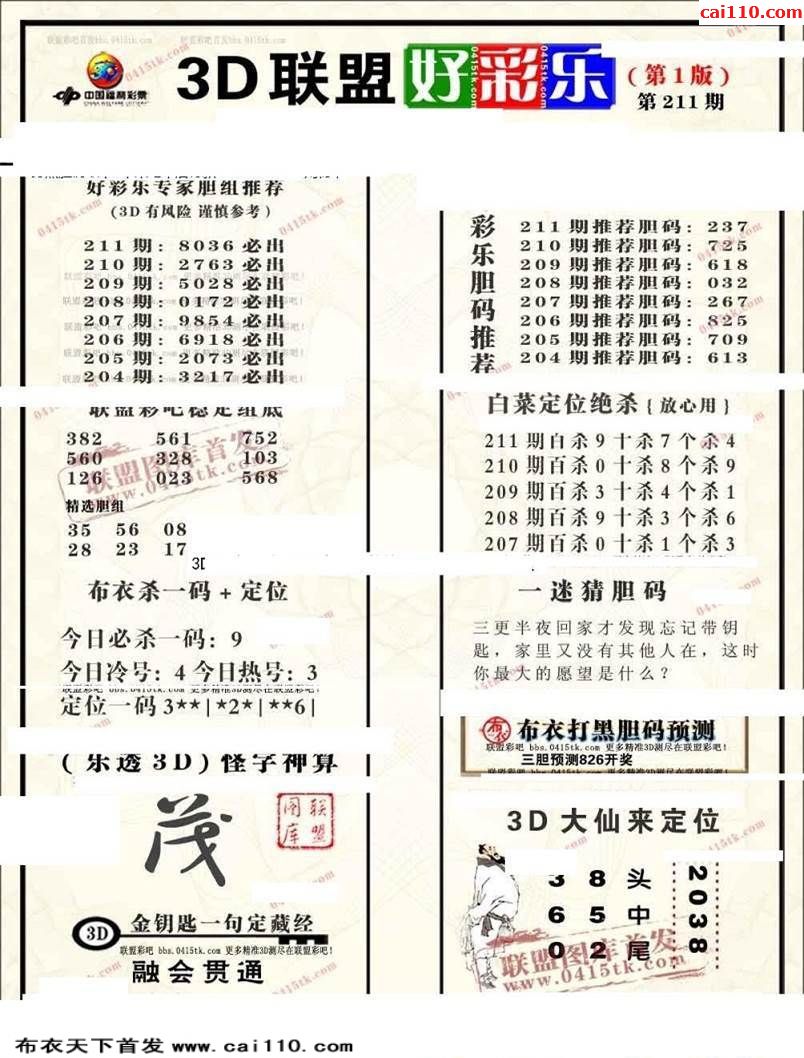 cai110.com
中国福利彩票
CHINA WELFARE LOTTERY
3D联盟好彩乐
(第1版)
第211期
好彩乐专家胆组推荐
(3D有风险 谨慎参考)
211期: 8036必出
210期: 2763必出
209期: 5028必出
208期: 0172必出
207期: 9854必出
206期: 6918必出
205期: 2073必出
204期: 3217必出
联盟彩吧稳定组底
382 561 752
560 328 103
126 023 568
精选胆组
35 56 08
28 23 17
3D
布衣杀一码+定位
今日必杀一码: 9
今日冷号: 4 今日热号: 3
联盟彩吧 bbs.0415tk.com 更多精准3D测尽在联盟彩吧!
定位一码 3**|*2*|**6|
(乐透3D)怪字神算
茂
联盟图库
3D
金钥匙一句定藏经
联盟彩吧 bbs.0415tk.com 更多精准3D测尽在联盟彩吧!
融会贯通
彩乐胆码推荐
211期推荐胆码: 237
210期推荐胆码: 725
209期推荐胆码: 618
208期推荐胆码: 032
207期推荐胆码: 267
206期推荐胆码: 825
205期推荐胆码: 709
204期推荐胆码: 613
白菜定位绝杀{放心用}
211期百杀9十杀7个杀4
210期百杀0十杀8个杀9
209期百杀3十杀4个杀1
208期百杀9十杀3个杀6
207期百杀0十杀1个杀3
一迷猜胆码
三更半夜回家才发现忘记带钥
匙，家里又没有其他人在，这时
你最大的愿望是什么？
布衣
布衣打黑胆码预测
联盟彩吧 bbs.0415tk.com 更多精准3D测尽在联盟彩吧!
三胆预测826开奖
3D大仙来定位
3 8 头
6 5 中
0 2 尾
2038
联盟图库首发
www.0415tk.com
布衣天下首发 www.cai110.com